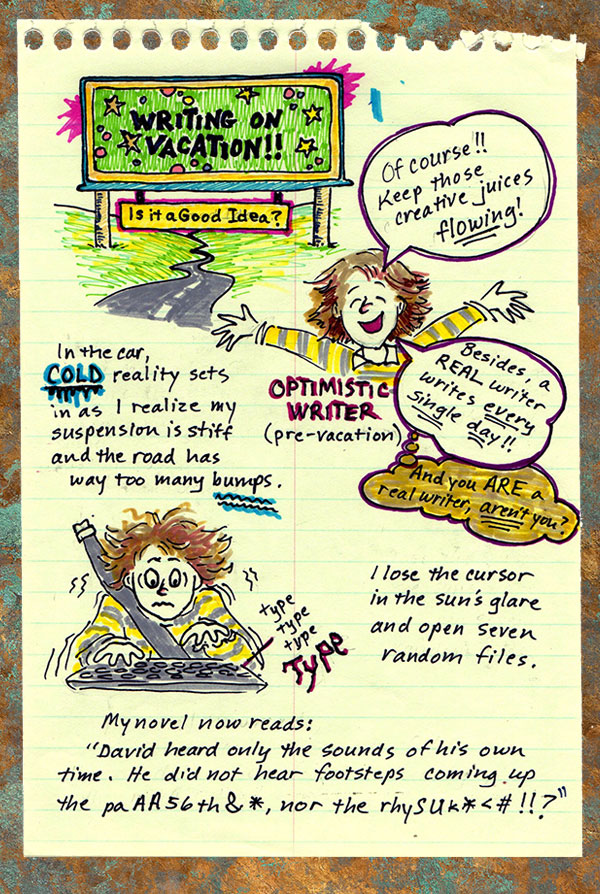 WRITING ON
VACATION!!
Is it a Good Idea?
Of course!!
Keep those
creative juices
flowing!
OPTIMISTIC
WRITER
(pre-vacation)
Besides, a
REAL writer
writes every
single day!!
And you ARE a
real writer, aren't you?
In the car,
COLD reality sets
in as I realize my
suspension is stiff
and the road has
way too many bumps.
type
type
type
Type
I lose the cursor
in the sun's glare
and open seven
random files.
My novel now reads:
"David heard only the sounds of his own
time. He did not hear footsteps coming up
the paAA56th&*, nor the rhySUK*<#!!?"